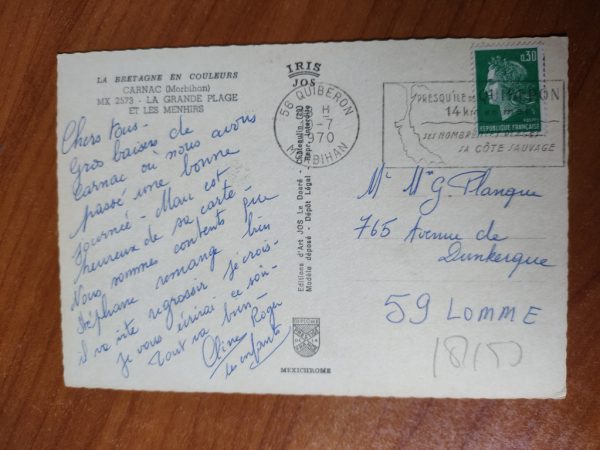 LA BRETAGNE EN COULEURS
CARNAC (Morbihan)
MX 2573 - LA GRANDE PLAGE
ET LES MENHIRS
Chers tous -
Gros baisers de
Carnac ou nous avons
passé une bonne
journée - Marc est
heureux de sa carte -
Nous sommes contents que
Stéphane remange bien
il va vite regrossir je crois -
Je vous écrirai ce soir -
Tout va bien -
Roger
les enfants
IRIS
JOS
Editions d'Art JOS Le Doaré - Châteaulin (29)
Modèle déposé - Dépôt Légal
MEXICHROME
56 QUIBERON
H
-7
970
MORBIHAN
PRESQU'ILE DE QUIBERON
14 k
SES NOMBRE
SA CÔTE SAUVAGE
0,30
REPUBLIQUE FRANÇAISE
Mr Me G. Planque
765 Avenue de
Dunkerque
59 LOMME